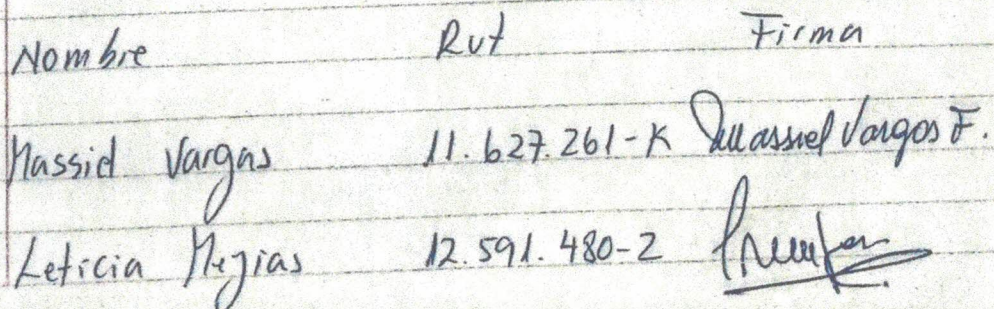 Nombre Rut Firma
Massiel Vargas 11.627.261-K Massiel Vargas F.
Leticia Mejias 12.591.480-2